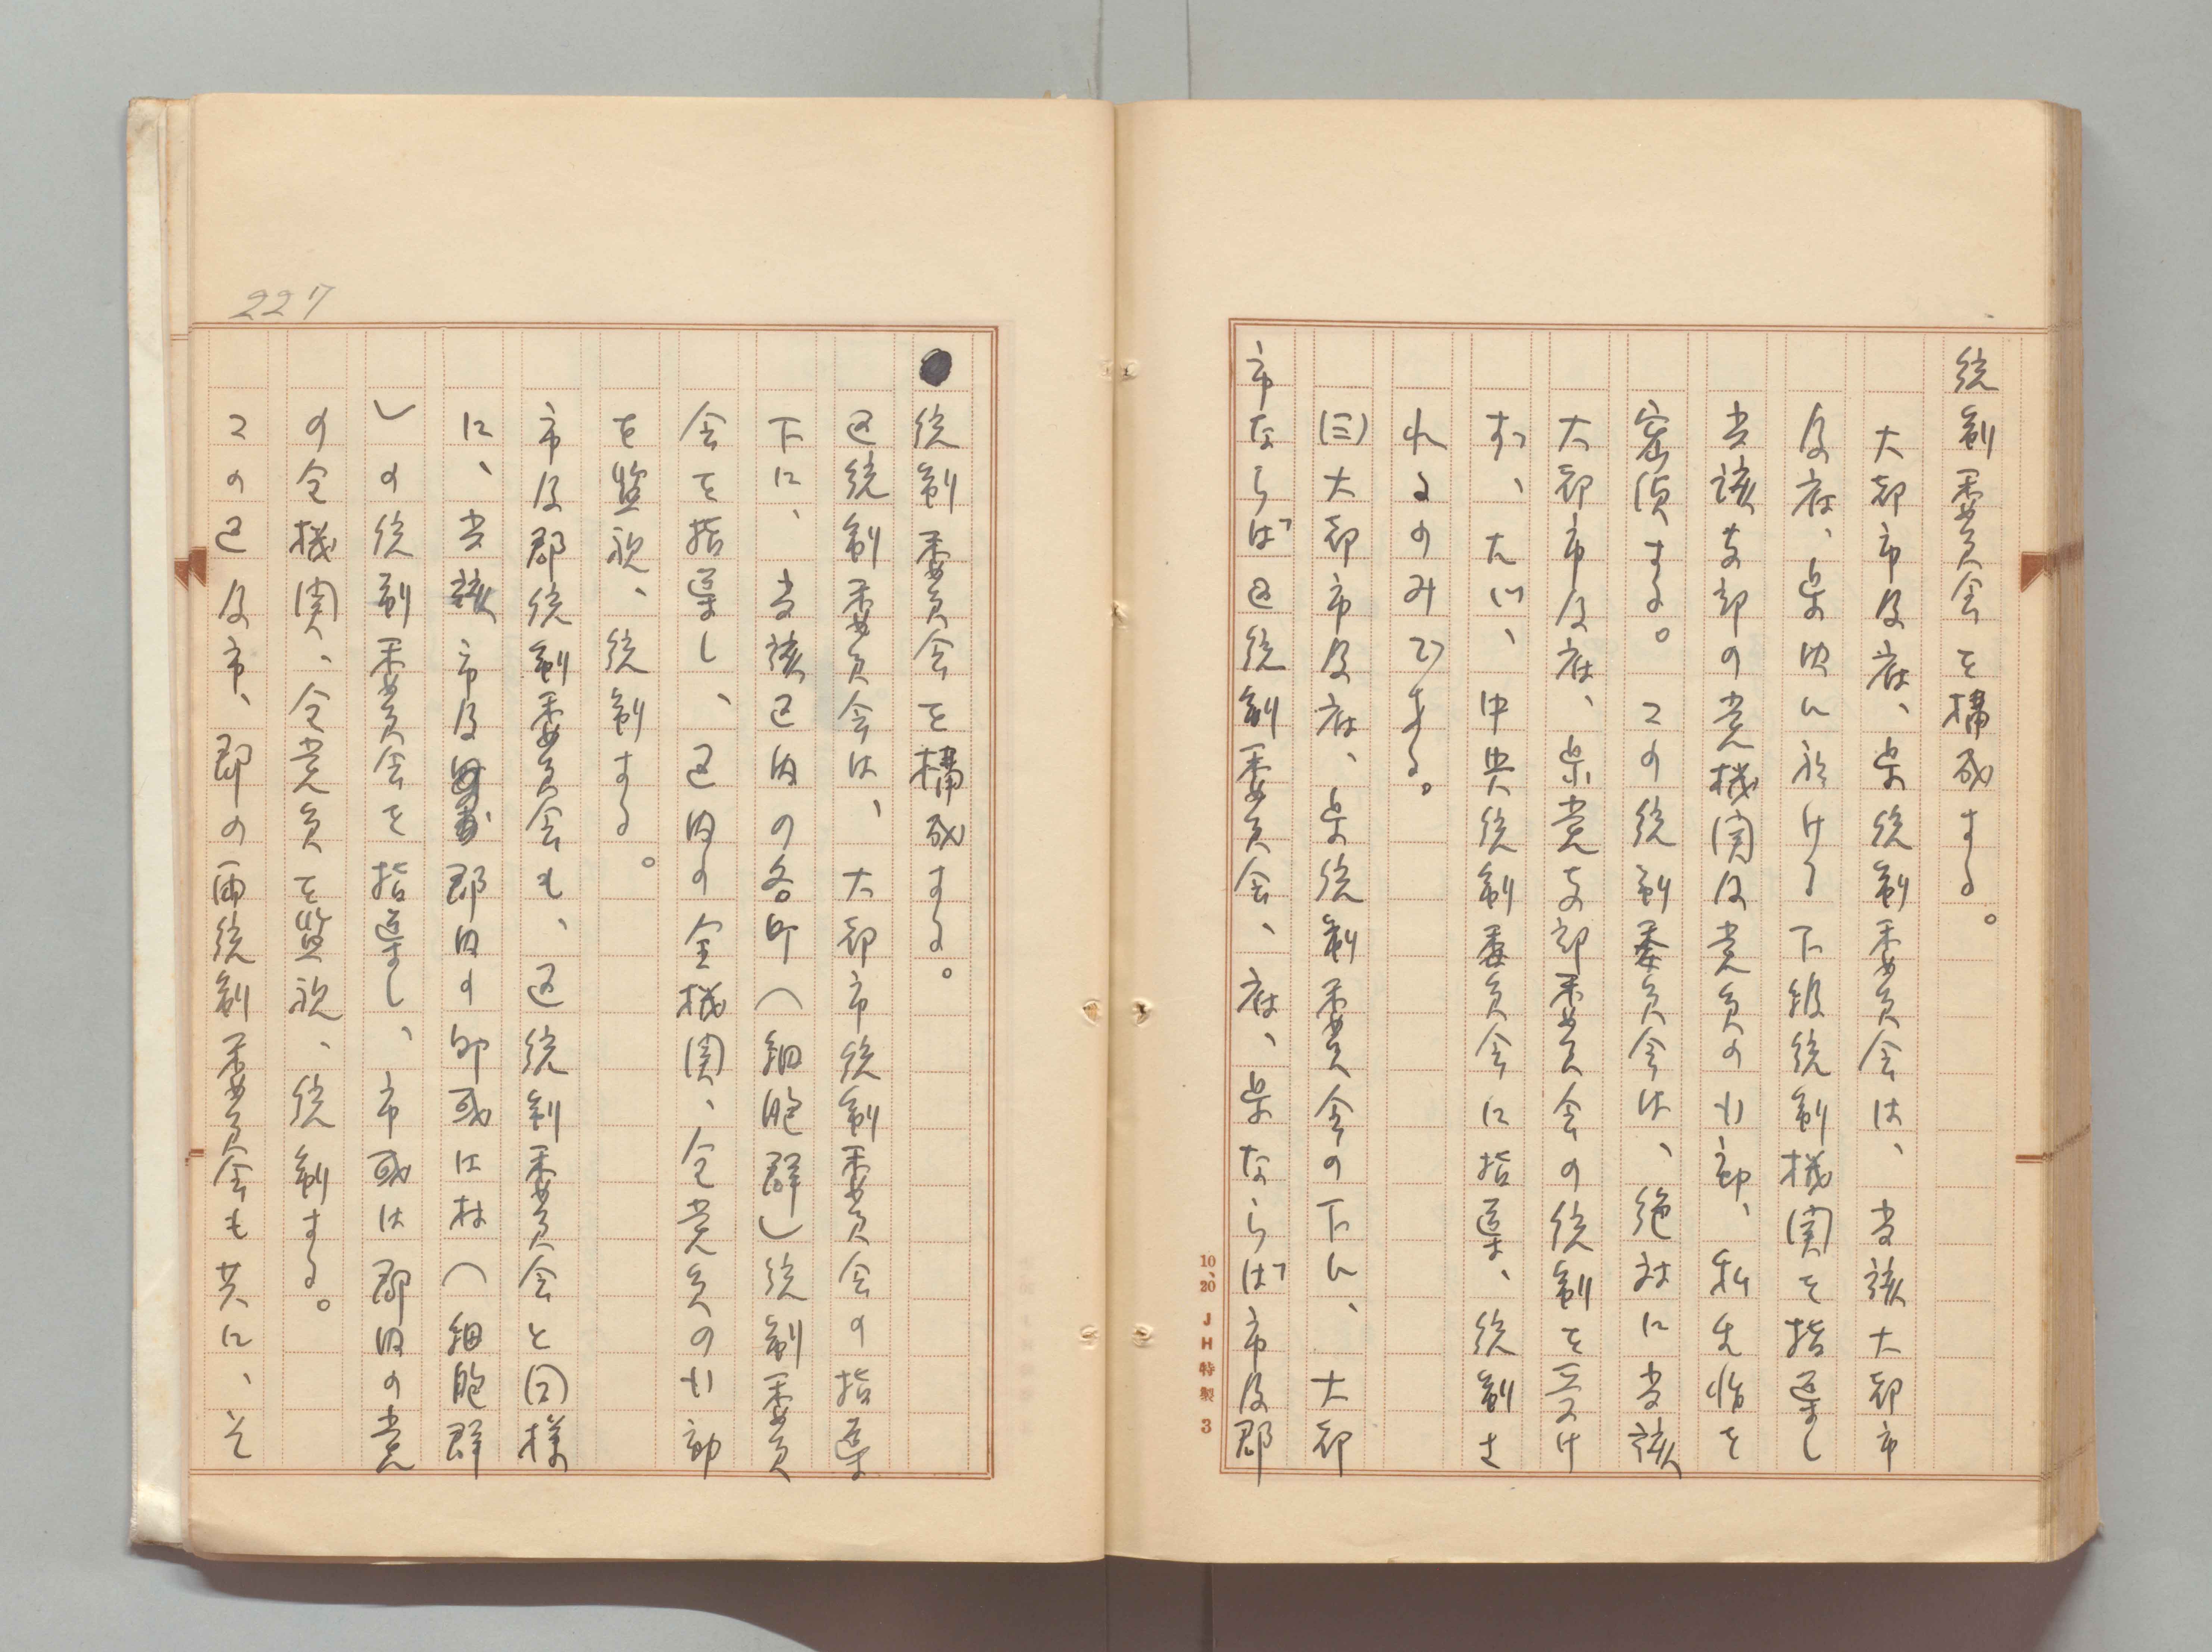 統制委員会を構成する。
大都市及府、県統制委員会は、当該大都市
及府、県内に於ける下級統制機関を指導し
当該支部の党機関及党員の行動、私生活を
密偵する。この統制委員会は、絶対に当該
大都市及府、県党支部委員会の統制を受け
ず、たゞ、中央統制委員会に指導、統制さ
れるのみである。
(三)大都市及府、県統制委員会の下に、大都
市ならば区統制委員会、府、県ならば市及郡
統制委員会を構成する。
区統制委員会は、大都市統制委員会の指導
下に、当該区内の各町(細胞群)統制委員
会を指導し、区内の全機関、全党員の行動
を監視、統制する。
市及郡統制委員会も、区統制委員会と同様
に、当該市及郡内の町或は村(細胞群
)の統制委員会を指導し、市或は郡内の党
の全機関、全党員を監視、統制する。
この区及市、郡の両統制委員会も共に、そ
227
10、20 JH特製 3